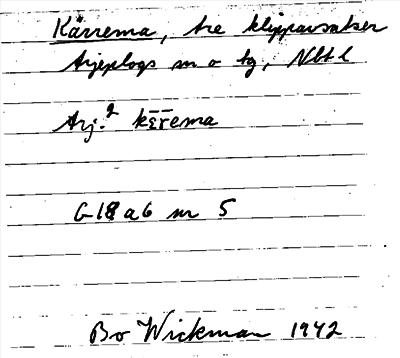 Kärrema, tre klippavsatser
Arjeplogs sn o tg, Nbt l
Arj.² kɛ̄r̄ema
G 18 a 6 nr 5
Bo Wickman 1942